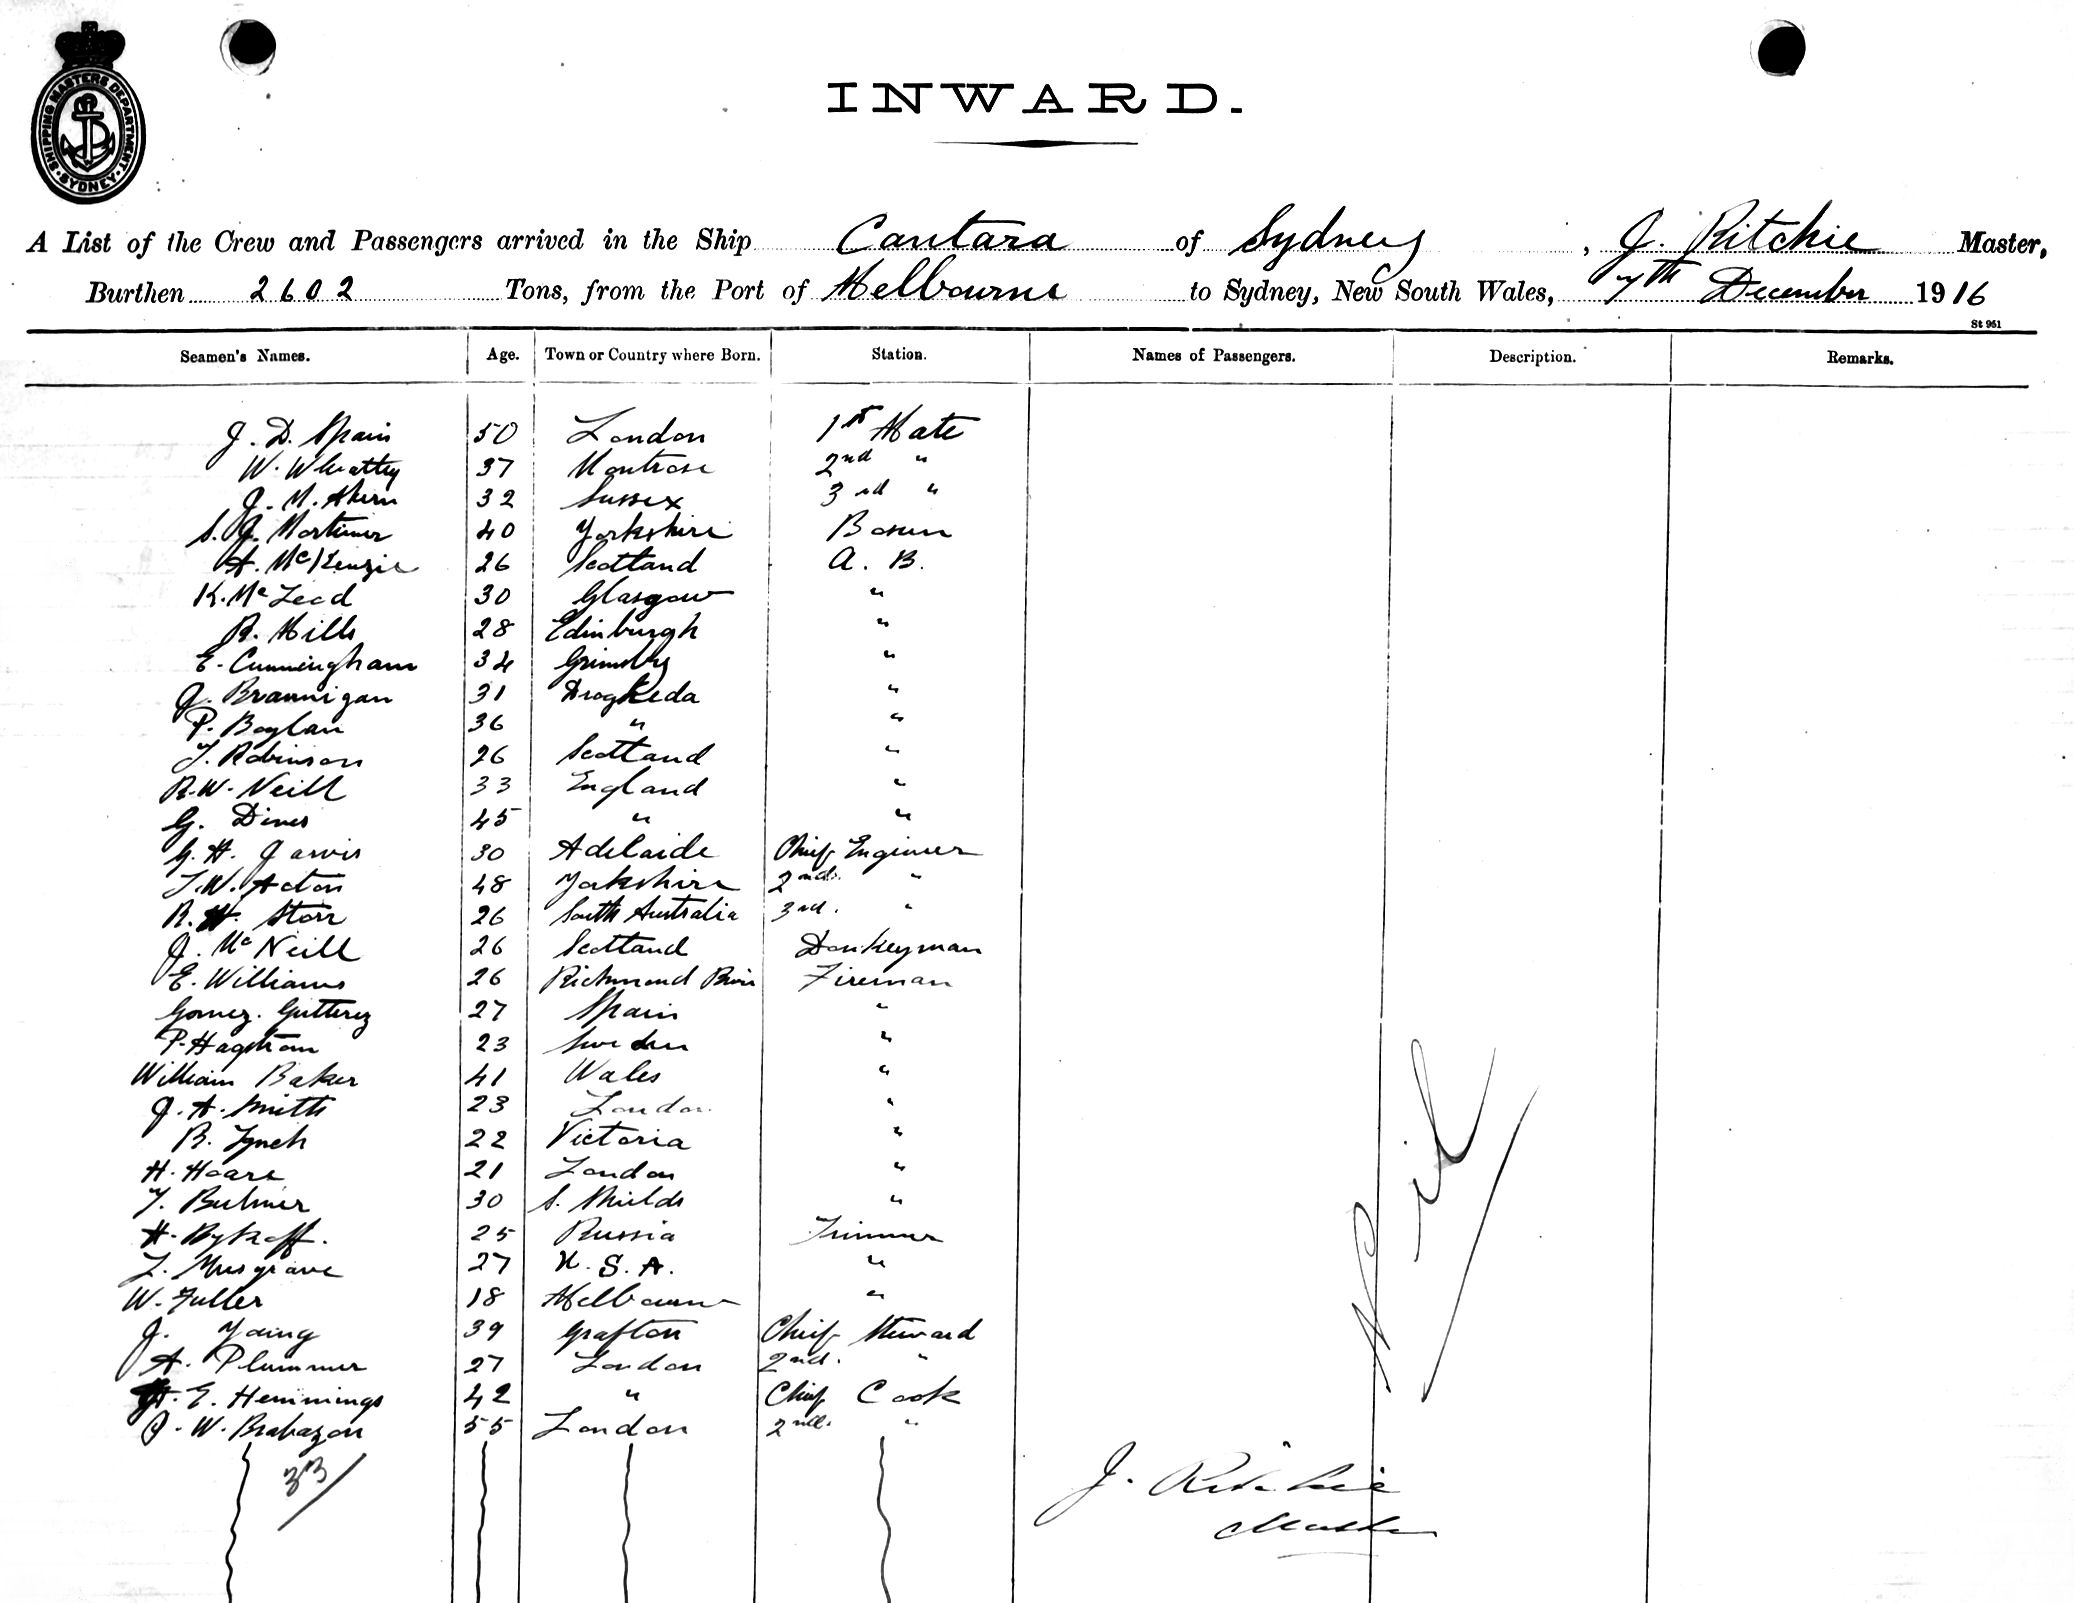 SHIPPING MASTERS DEPARTMENT. SYDNEY.
INWARD.
A List of the Crew and Passengers arrived in the Ship Cantara of Sydney, J. Ritchie Master,
Burthen 2602 Tons, from the Port of Melbourne to Sydney, New South Wales, 7th December 1916
St 951
Seamen's Names. Age. Town or Country where Born. Station. Names of Passengers. Description. Remarks.
J. D. Spain 50 London 1st Mate
W. Wheatley 37 Montrose 2nd "
J. M. Ahern 32 Sussex 3rd "
S. J. Mortimer 40 Yorkshire Bosun
A. McKenzie 26 Scotland A. B.
K. McLeod 30 Glasgow "
R. Mills 28 Edinburgh "
E. Cunningham 34 Grimsby "
J. Brannigan 31 Drogheda "
P. Boylan 36 " "
T. Robinson 26 Scotland "
R. W. Neill 33 England "
G. Dines 45 " "
G. H. Jarvis 30 Adelaide Chief Engineer
T. W. Acton 48 Yorkshire 2nd. "
R. H. Storr 26 South Australia 3rd. "
J. McNeill 26 Scotland Donkeyman
E. Williams 26 Richmond River Fireman
Gomez. Gutterez 27 Spain "
P. Hagstrom 23 Sweden "
William Baker 41 Wales "
J. A. Smith 23 London "
R. Lynch 22 Victoria "
H. Hoare 21 London "
T. Bulmer 30 S. Shields "
H. Rykoff. 25 Russia Trimmer
L. Musgrave 27 U. S. A. "
W. Fuller 18 Melbourne "
J. Young 39 Grafton Chief Steward
A. Plummer 27 London 2nd. "
H. E. Hemmings 42 " Chief Cook
J. W. Brabazon 55 London 2nd. "
33/
Nil
J. Ritchie
Master